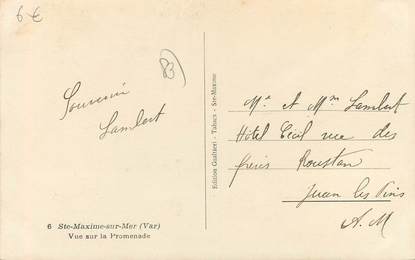 6 €
83
Souvenir
Lambert
6 Ste-Maxime-sur-Mer (Var)
Vue sur la Promenade
Edition Gualtieri - Tabacs - Ste-Maxime
Mr et Mme Lambert
Hôtel Cécil rue des
frères Roustan
Juan les Pins
A.M